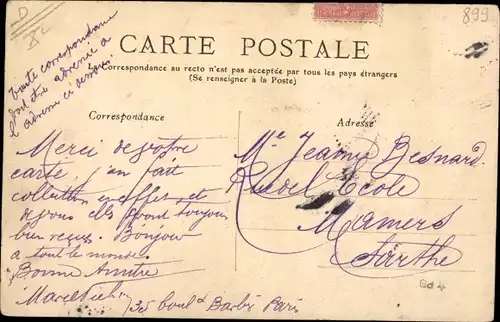 D
899
Toute correspondance
doit être adressée à
l'adresse ci dessous
CARTE POSTALE
Correspondance au recto n'est pas acceptée par tous les pays étrangers
(Se renseigner à la Poste)
Correspondance
Adresse
Merci de votre
carte, j'en fait
collection en effet, et
de vous elles seront toujours
bien reçues. Bonjour
a tout le monde.
Bonne Amitié
Marcel
35 boul d Barbès Paris
Jeanne Besnard
Rue de l'Ecole
Mamers
Sarthe